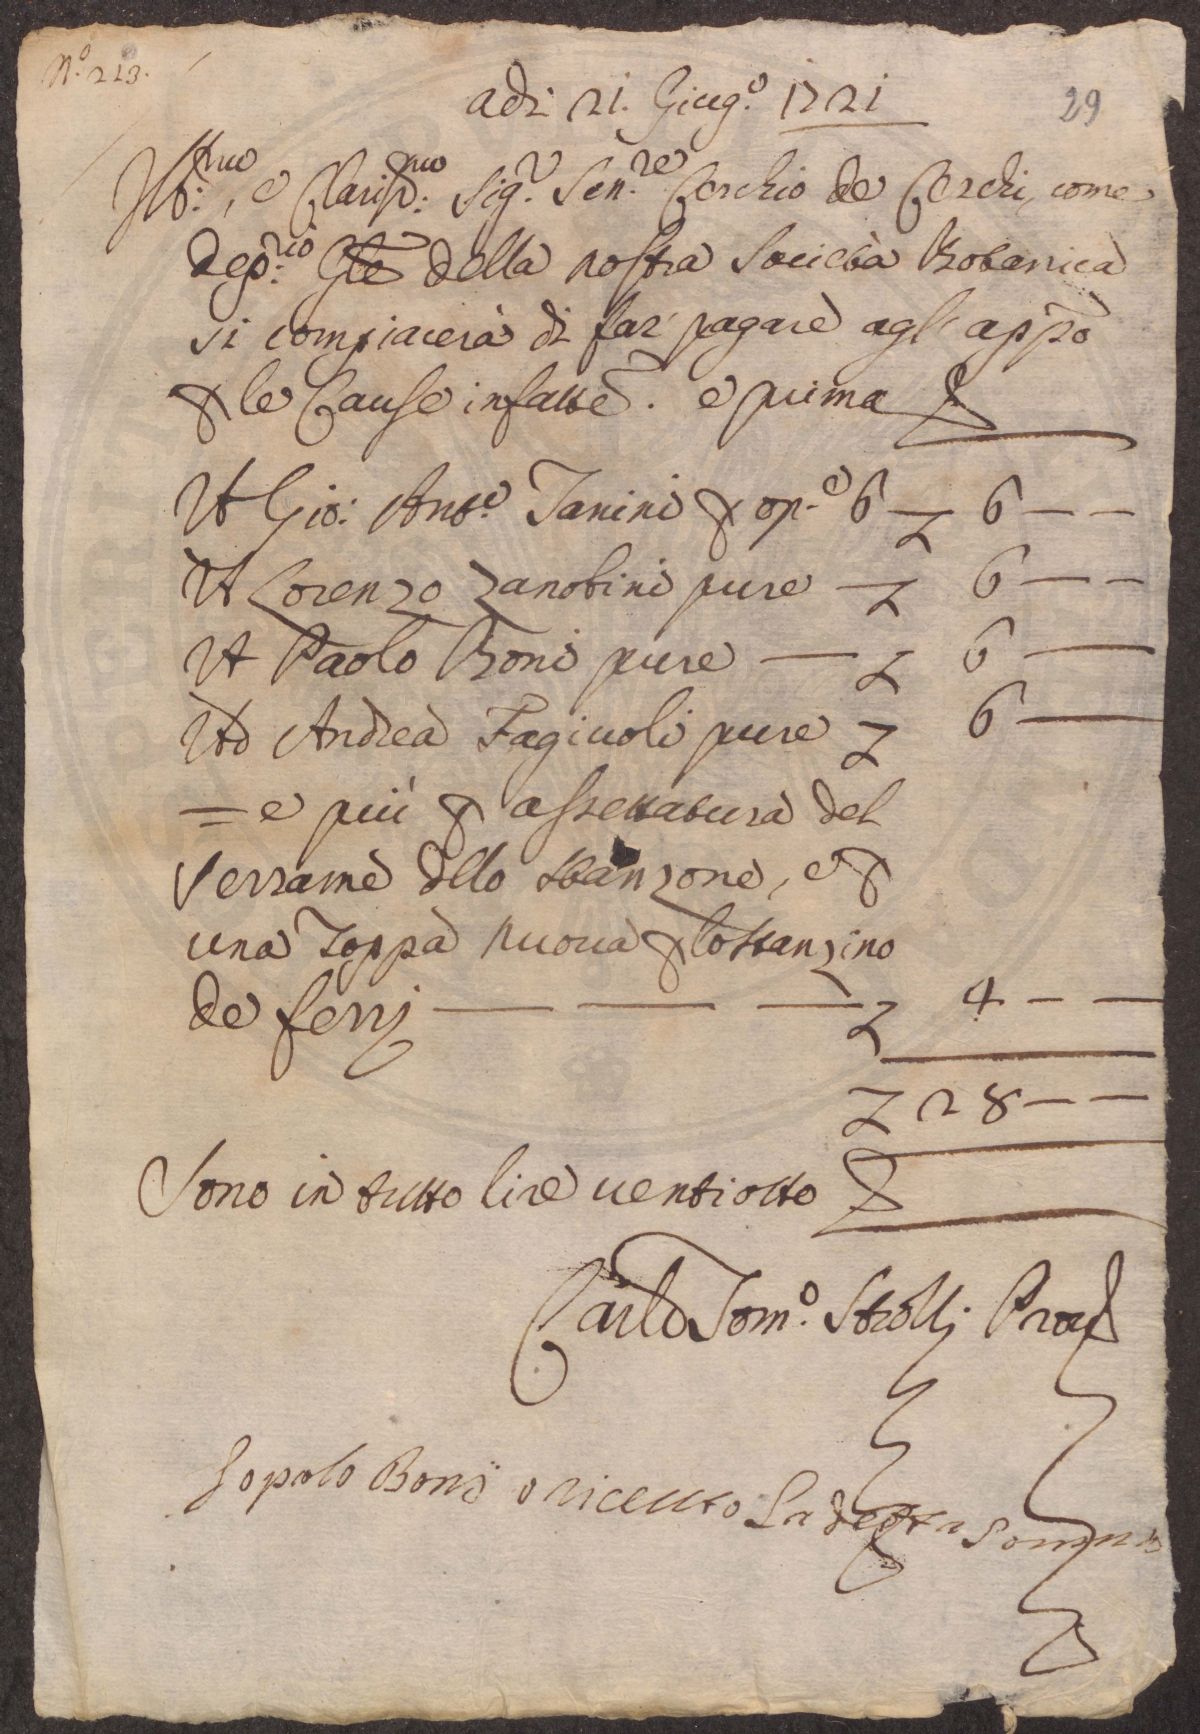 N.º 213.
29
adi 21. Giug.º 1721
Ill:mo, e Clariss:mo Sig.r Sen.re Cerchio de Cerchi, come
dep:rio Gle della nostra Società Botanica
si compiacerà di far pagare agl'appº
p le Cause infatte. e prima
A Gio: Ant.o Tanini p op.e 6 — L 6 — —
A Lorenzo Zanobini pure — L 6 — —
A Paolo Boni pure — L 6 —
Ad Andrea Fagiuoli pure L 6 —
= e più p assettatura del
serrame dllo stanzone, e p
una Toppa nuova p lo stanzino
de ferri — — — L 4 — —
L 28 — —
Sono in tutto lire ventiotto
Carlo Tom.º Strozzi Prov
Io polo Boni o riceuto La detta Somma